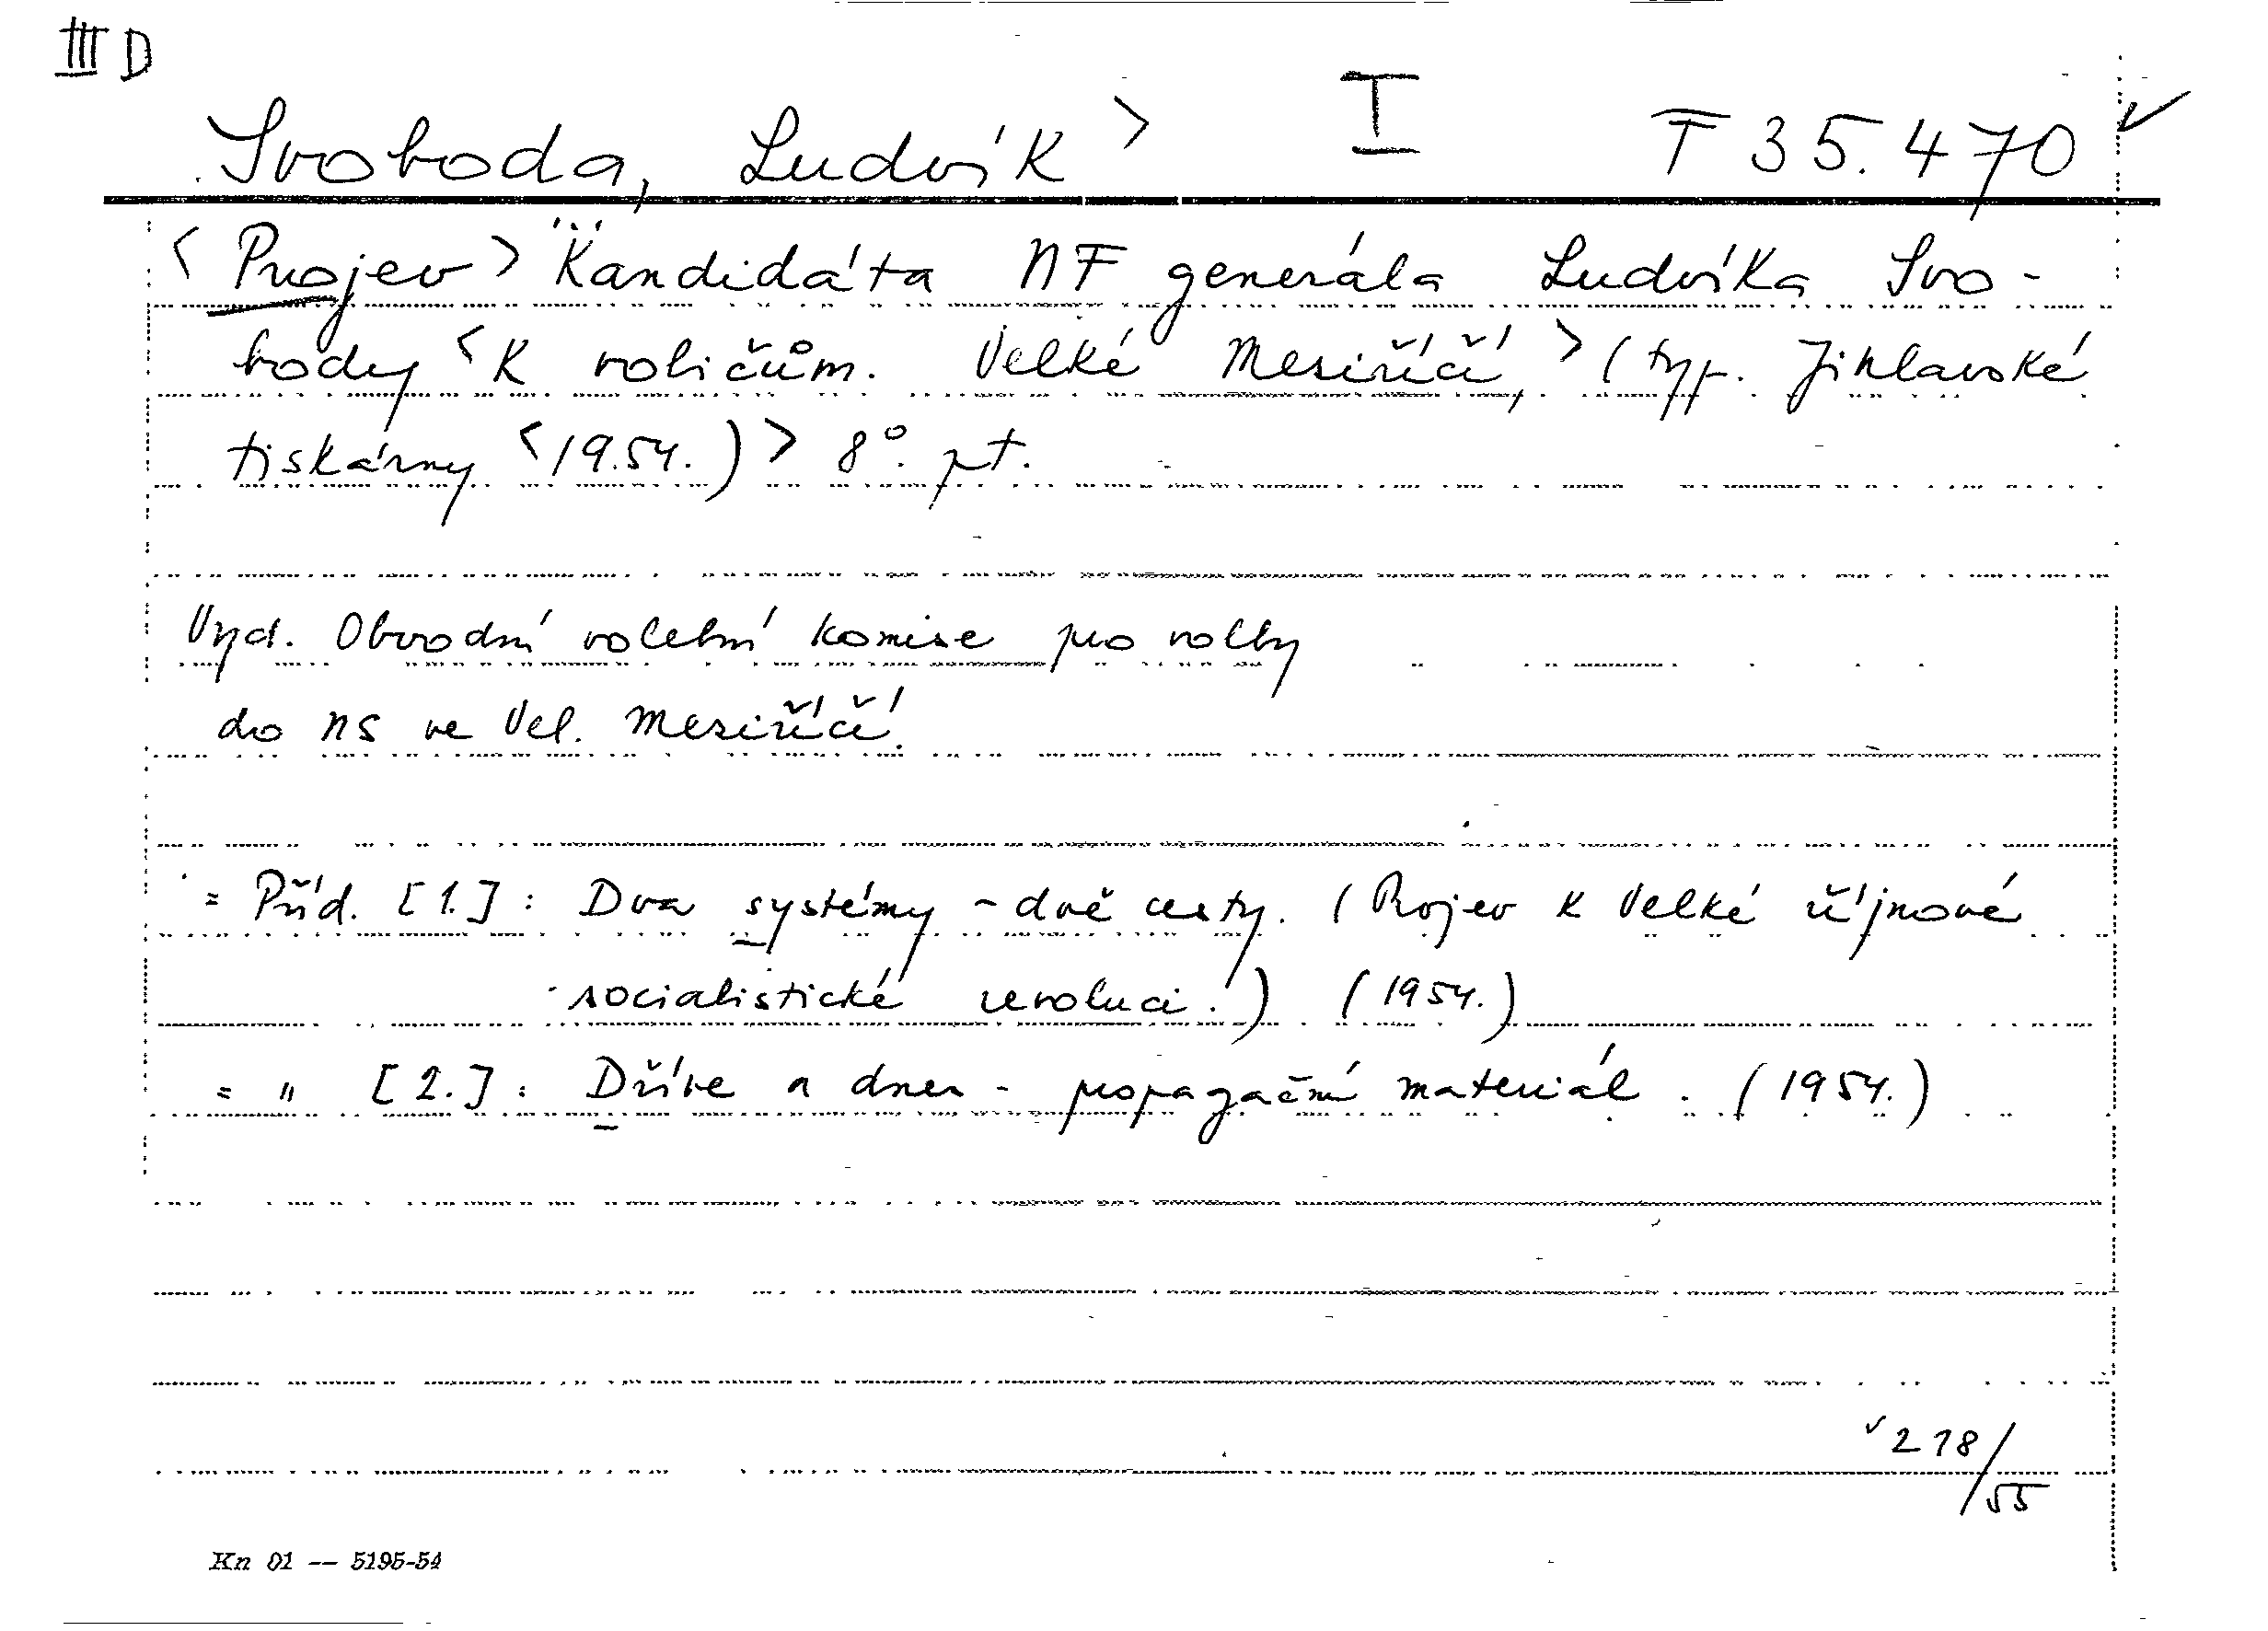 III D
Svoboda, Ludvík > I F 35.470 ✓
< Projev > Kandidáta NF generála Ludvíka Svo-
body < K voličům. Velké Meziříčí, > (typ. Jihlavské
tiskárny < 19.54.) > 8°. pt.
Vyd. Obvodní volební komise pro volby
do NS ve Vel. Meziříčí.
= Příd. [1.] : Dva systémy - dvě cesty. (Projev k Velké říjnové
socialistické revoluci.) (1954.)
= " [2.] : Dříve a dnes - propagační materiál. (1954.)
✓ 218/55
Kn 01 -- 5195-54